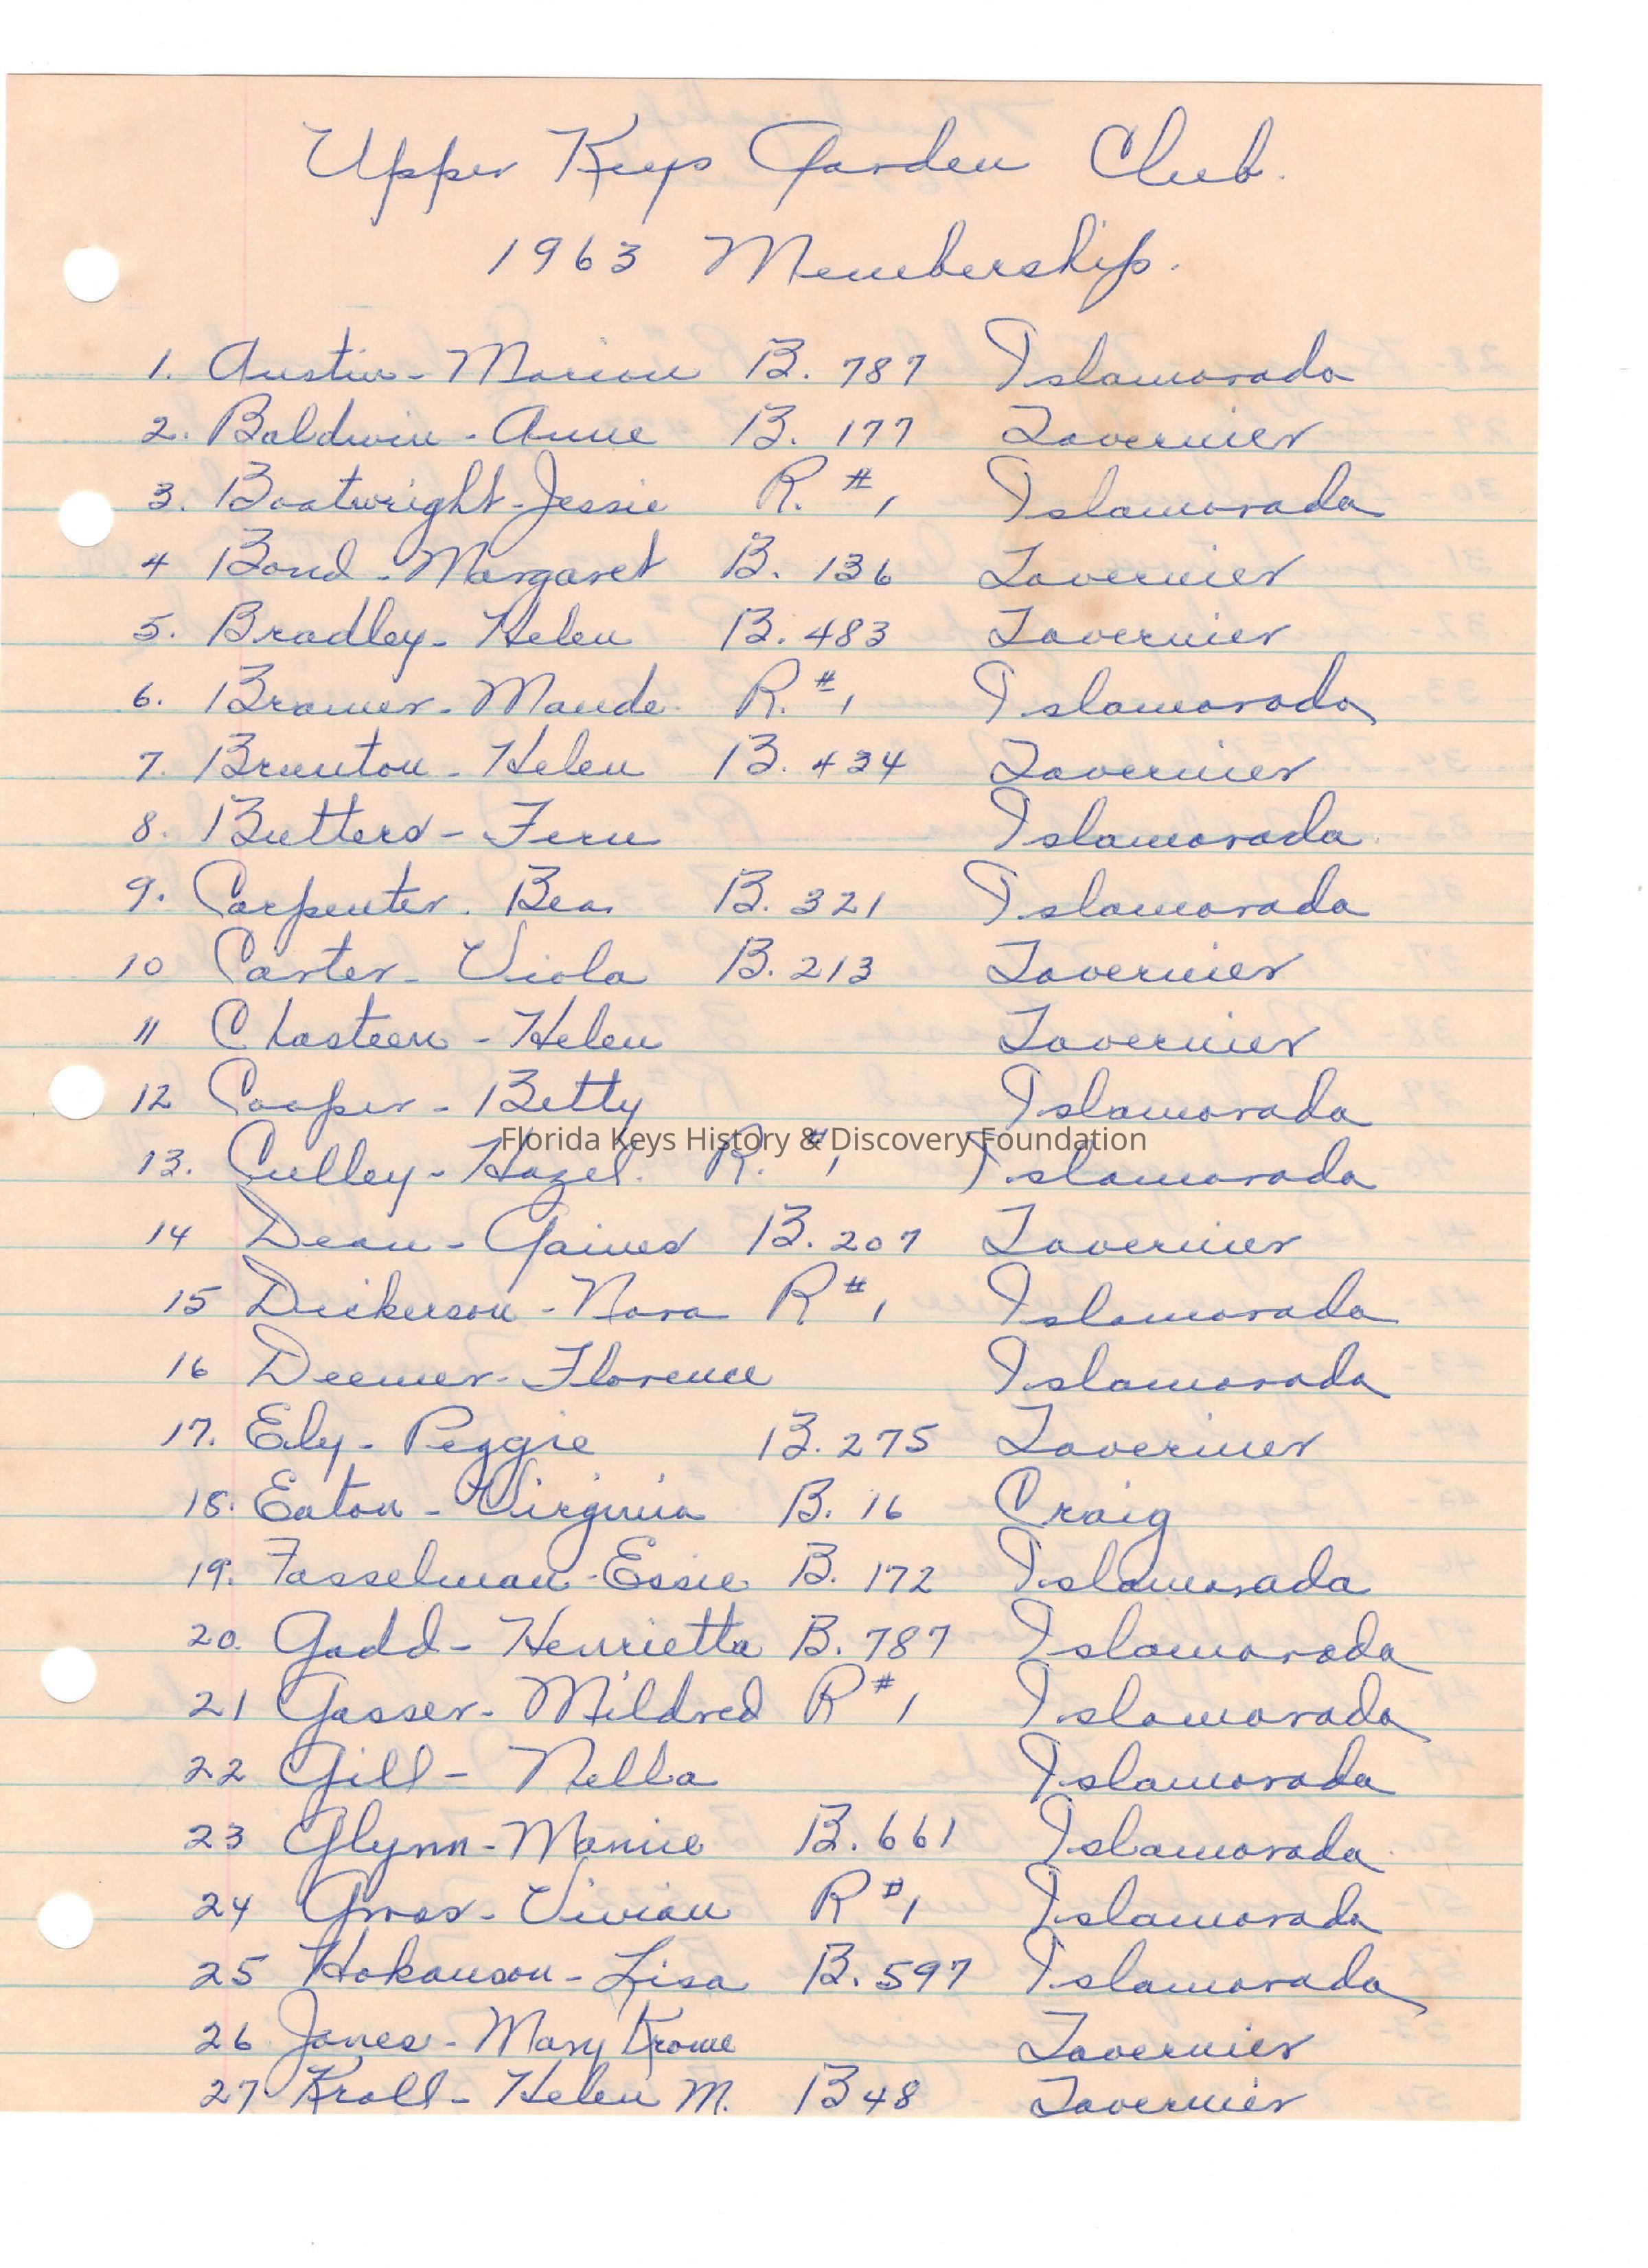 Upper Keys Garden Club.
1963 Membership.
1. Austin - Marion B. 787 Islamorada
2. Baldwin - Anne B. 177 Tavernier
3. Boatwright - Jessie R. #1 Islamorada
4 Bond - Margaret B. 136 Tavernier
5. Bradley - Helen B. 483 Tavernier
6. Bramer - Maude R. #1 Islamorada
7. Brunton - Helen B. 434 Tavernier
8. Butters - Fern Islamorada
9. Carpenter. Bea. B. 321 Islamorada
10 Carter - Viola B. 213 Tavernier
11 Chasteen - Helen Tavernier
12 Cooper - Betty Islamorada
Florida Keys History & Discovery Foundation
13. Culley - Hazel. R. #1 Islamorada
14 Dean - Gaines B. 207 Tavernier
15 Dickerson - Nora R #1 Islamorada
16 Deemer - Florence Islamorada
17. Ely - Peggie B. 275 Tavernier
18. Eaton - Virginia B. 16 Craig
19. Fasselman - Essie B. 172 Islamorada
20. Gadd - Henrietta B. 787 Islamorada
21 Gasser - Mildred R #1 Islamorada
22 Gill - Nella Islamorada
23 Glynn - Mamie B. 661 Islamorada
24 Vivian R #1 Islamorada
25 Hokanson - Lisa B. 597 Islamorada
26 Jones - Mary Krome Tavernier
27 Kroll - Helen M. B 48 Tavernier